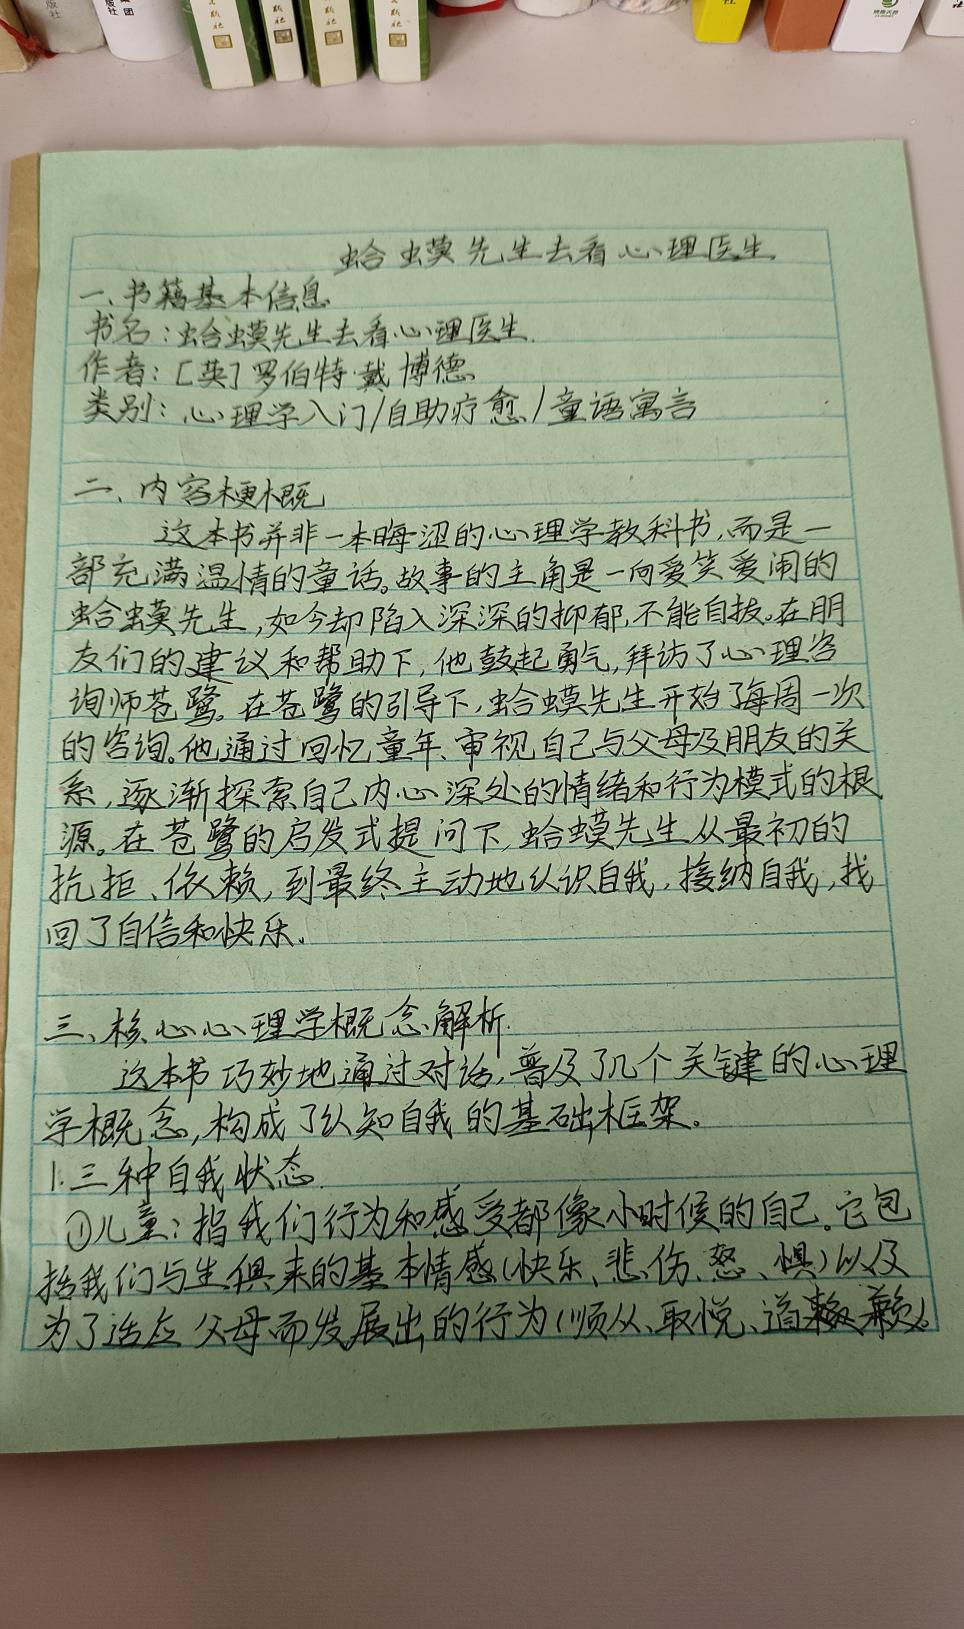 版社
集团
出版社
文版社
出版社
出版社
社
蛤蟆先生去看心理医生
一、书籍基本信息
书名:蛤蟆先生去看心理医生.
作者:[英]罗伯特·戴博德
类别:心理学入门/自助疗愈/童话寓言
二、内容梗概
这本书并非一本晦涩的心理学教科书,而是一
部充满温情的童话。故事的主角是一向爱笑爱闹的
蛤蟆先生,如今却陷入深深的抑郁,不能自拔。在朋
友们的建议和帮助下,他鼓起勇气,拜访了心理咨
询师苍鹭。在苍鹭的引导下,蛤蟆先生开始了每周一次
的咨询。他通过回忆童年、审视自己与父母及朋友的关
系,逐渐探索自己内心深处的情绪和行为模式的根
源。在苍鹭的启发式提问下,蛤蟆先生从最初的
抗拒、依赖,到最终主动地认识自我,接纳自我,找
回了自信和快乐.
三、核心心理学概念解析.
这本书巧妙地通过对话,普及了几个关键的心理
学概念,构成了认知自我的基础框架.
1.三种自我状态.
①儿童:指我们行为和感受都像小时候的自己。它包
括我们与生俱来的基本情感(快乐、悲伤、怒、惧)以及
为了适应父母而发展出的行为(顺从、取悦、道歉)。